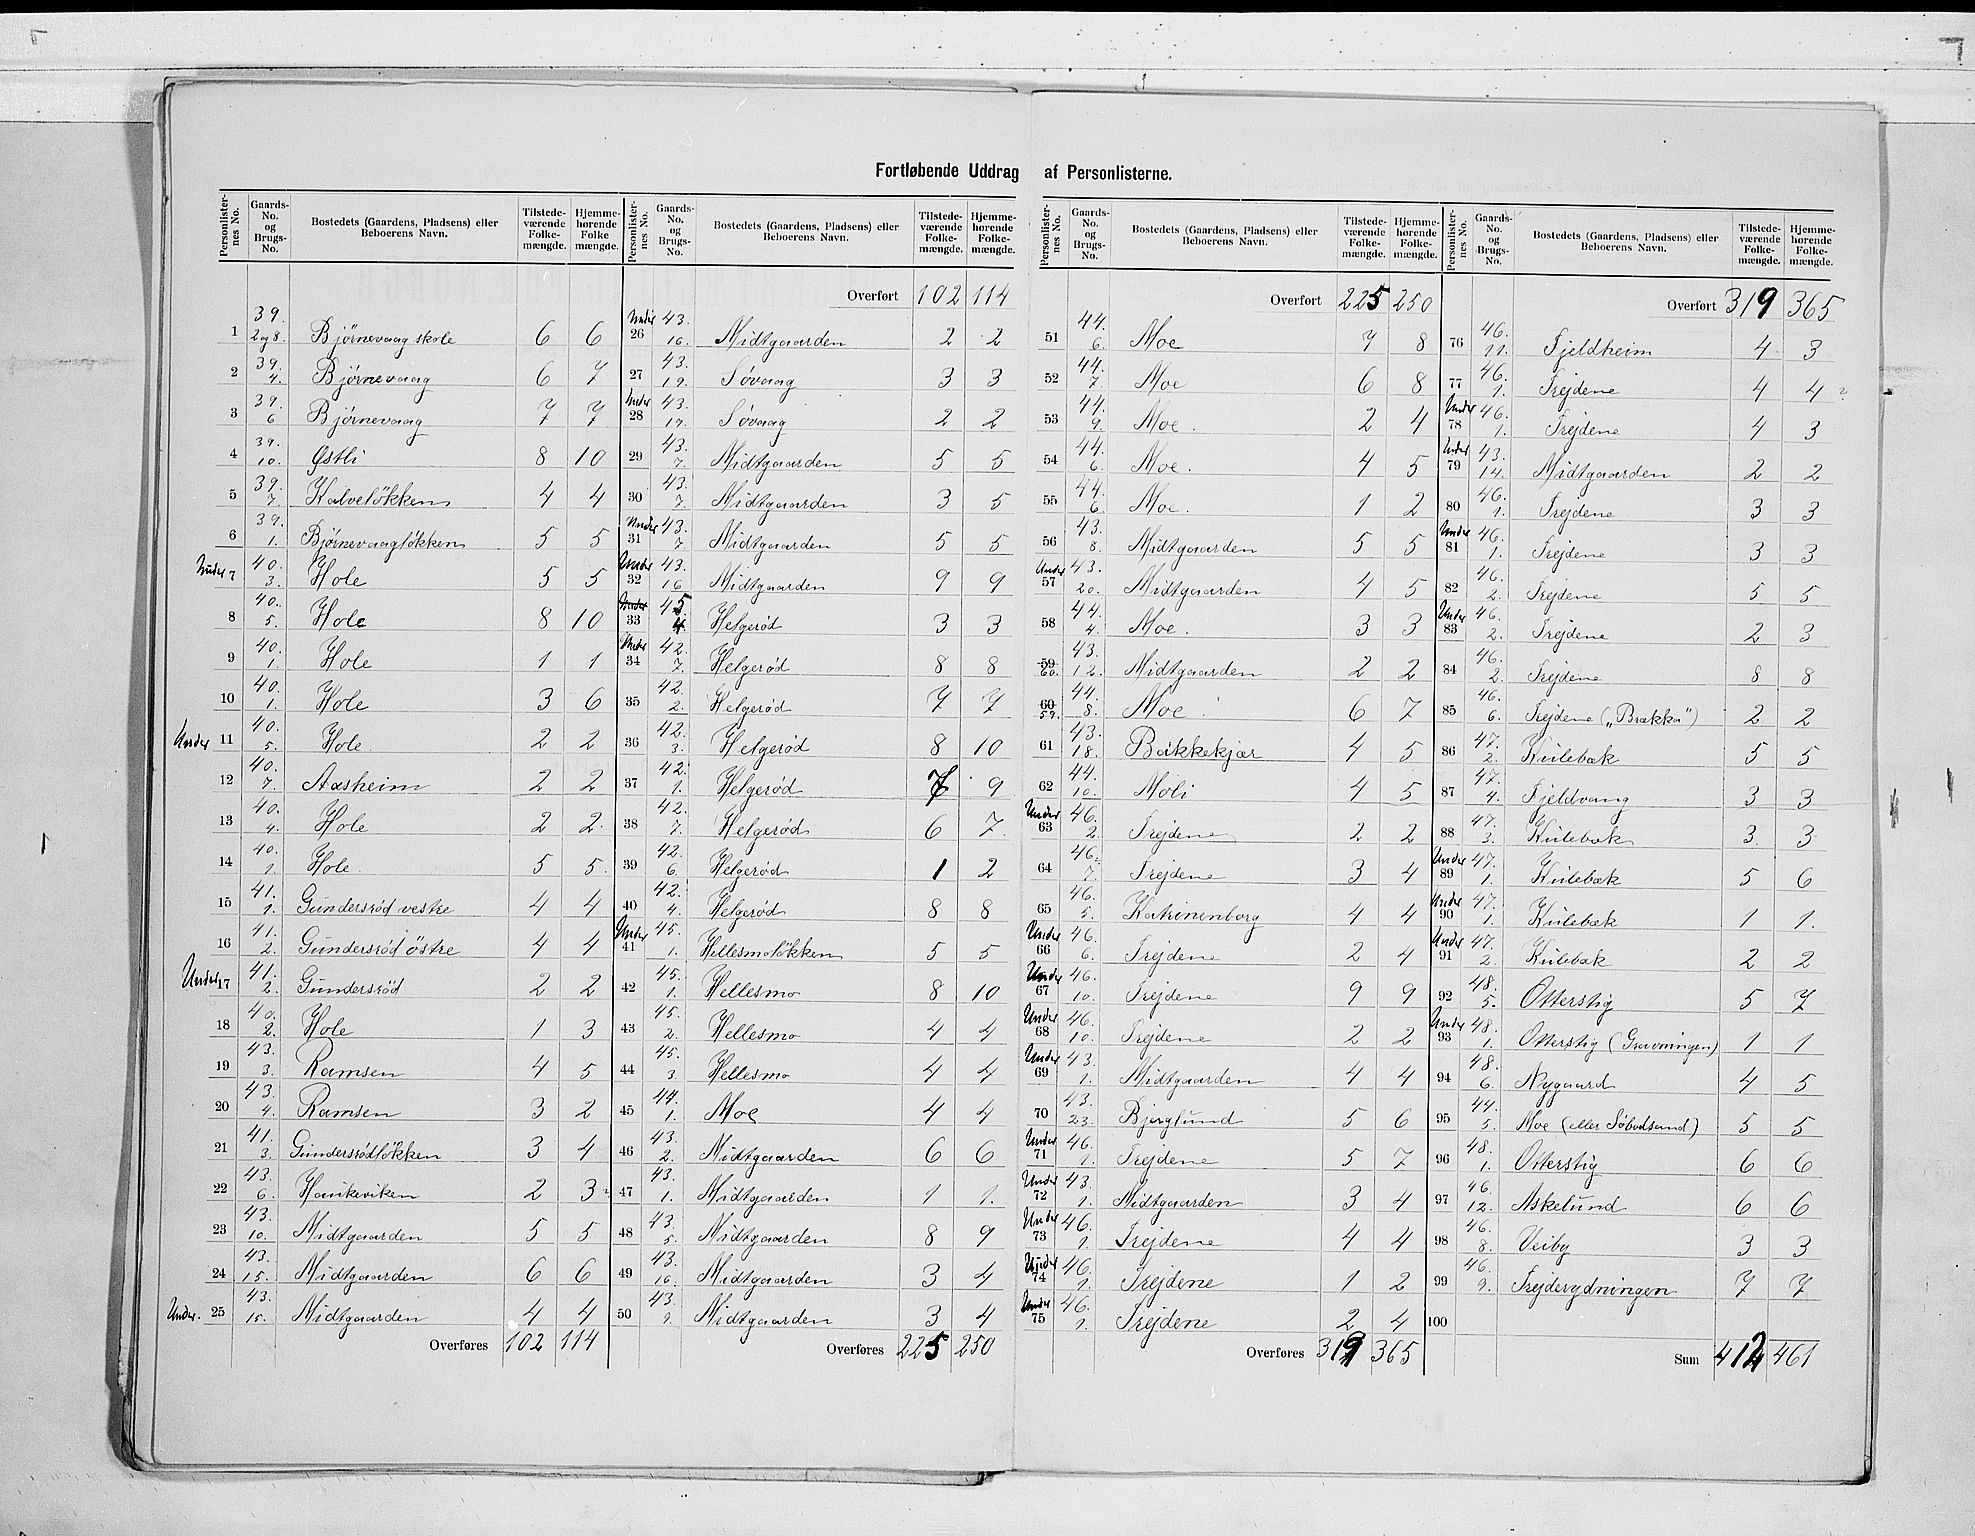 Fortløbende Uddrag af Personlisterne.
Personlisternes No. Gaards-No. og Brugs-No. Bostedets (Gaardens, Pladsens) eller Beboerens Navn. Tilstedeværende Folkemængde. Hjemmehørende Folkemængde.
1 39. 2 og 8. Bjørnevaag skole 6 6
2 39. 4. Bjørnevaag 6 7
3 39. 6 Bjørnevaag 7 7
4 39. 10. Østli 8 10
5 39. 7. Kalveløkken 4 4
6 39. 1. Bjørnevaagløkken 5 5
Under 7 40. 3. Hole 5 5
8 40. 5. Hole 8 10
9 40. 1. Hole 1 1
10 40. 1. Hole 3 6
Under 11 40. 5. Hole 2 2
12 40. 7. Aasheim 2 2
13 40. 4. Hole 2 2
14 40. 1. Hole 5 5
15 41. 1. Gundersrød vestre 4 4
16 41. 2. Gundersrød östre 4 4
Under 17 41. 2. Gundersrød 2 2
18 40. 2. Hole 1 3
19 43. 3. Ramsen 4 5
20 43. 4. Ramsen 3 2
21 41. 3. Gundersrødløkken 3 4
22 43. 6. Haukeviken 2 3
23 43. 10. Midtgaarden 5 5
24 43. 15. Midtgaarden 6 6
Under. 25 43. 15. Midtgaarden 4 4
Overføres 102 114
Personlisternes No. Gaards-No. og Brugs-No. Bostedets (Gaardens, Pladsens) eller Beboerens Navn. Tilstedeværende Folkemængde. Hjemmehørende Folkemængde.
Overført 102 114
Under 26 43. 16. Midtgaarden 2 2
27 43. 19. Søvaag 3 3
Under 28 43. 19. Søvaag 2 2
29 43. 7. Midtgaarden 5 5
30 43. 7. Midtgaarden 3 5
Under 31 43. 7. Midtgaarden 5 5
Under 32 43. 16 Midtgaarden 9 9
Under 33 45. 4. Helgerød 3 3
Under 34 42. 7. Helgerød 8 8
35 42. 2. Helgerød 7 7
36 42. 3. Helgerød 8 10
37 42. 1. Helgerød 7 9
38 42. 7. Helgerød 6 7
39 42. 6. Helgerød 1 2
40 42. 4. Helgerød 8 8
Under 41 45. 1. Hellesmoløkken 5 5
42 45. 1. Hellesmo 8 10
43 45. 2. Hellesmo 4 4
44 45. 3. Hellesmo 4 4
45 44. 1. Moe 4 4
46 43. 2. Midtgaarden 6 6
47 43. 1. Midtgaarden 1 1.
48 43. 5. Midtgaarden 8 9
49 43. 16. Midtgaarden 3 4
50 43. 9. Midtgaarden 3 4
Overføres 225 250
Personlisternes No. Gaards-No. og Brugs-No. Bostedets (Gaardens, Pladsens) eller Beboerens Navn. Tilstedeværende Folkemængde. Hjemmehørende Folkemængde.
Overført 225 250
51 44. 6. Moe 7 8
52 44. 7. Moe 6 8
53 44. 9. Moe. 2 4
54 44. 6. Moe. 4 5
55 44. 6 Moe. 1 2
56 43. 8. Midtgaarden 5 5
Under 57 43. 20. Midtgaarden 4 5
58 44. 4. Moe. 3 3
59 60. 43. 12. Midtgaarden 2 2
60 59. 44. 8. Moe. 6 7
61 43. 18. Bakkekjær 4 5
62 44. 10. Moli 4 5
Under 63 46. 2. Trejdene 2 2
64 46. 7. Trejdene 3 4
65 46. 5. Katrinenborg 4 4
Under 66 46. 6. Trejdene 2 4
Under 67 46. 10. Trejdene 9 9
Under 68 46. 10. Trejdene 2 2
Under 69 43. 1. Midtgaarden 4 4
70 43. 23. Bjerglund 5 6
Under 71 46. 1. Trejdene 5 7
Under 72 43. 1. Midtgaarden 3 4
Under 73 46. 1. Trejdene 4 4
Under 74 46. 1. Trejdene 1 2
Under 75 46. 1. Trejdene 2 4
Overføres 319 365
Personlisternes No. Gaards-No. og Brugs-No. Bostedets (Gaardens, Pladsens) eller Beboerens Navn. Tilstedeværende Folkemængde. Hjemmehørende Folkemængde.
Overført 319 365
76 46. 11. Fjeldheim 4 3
77 46. 1. Trejdene 4 4
Under 78 46. 1. Trejdene 4 3
Under 79 43. 14. Midtgaarden 2 2
80 46. 1. Trejdene 3 3
Under 81 46. 1. Trejdene 3 3
82 46. 2. Trejdene 5 5
Under 83 46. 2. Trejdene 2 3
84 46. 2. Trejdene 8 8
85 46. 6. Trejdene („Brække") 2 2
86 47. 2. Kulebæk 5 5
87 47. 4. Fjeldvang 3 3
88 47. 3. Kulebæk 3. 3
Under 89 47. 1. Kulebæk 5 6
Under 90 47. 1. Kulebæk 1 1.
Under 91 47. 2. Kulebæk 2 2
92 48. 5. Otterstig 5 7
Under 93 48. 1. Otterstig (Gravningen) 1 1
94 48. 6. Nygaard 4 5
95 44. 5. Moe (eller Söbodsand) 5 5
96 48. 1. Otterstig 6 6
97 46. 12. Askelund 6 6
98 46. 8. Veiby 3 3
99 46. 9. Trejderydningen 7 7
100
Sum 412 461